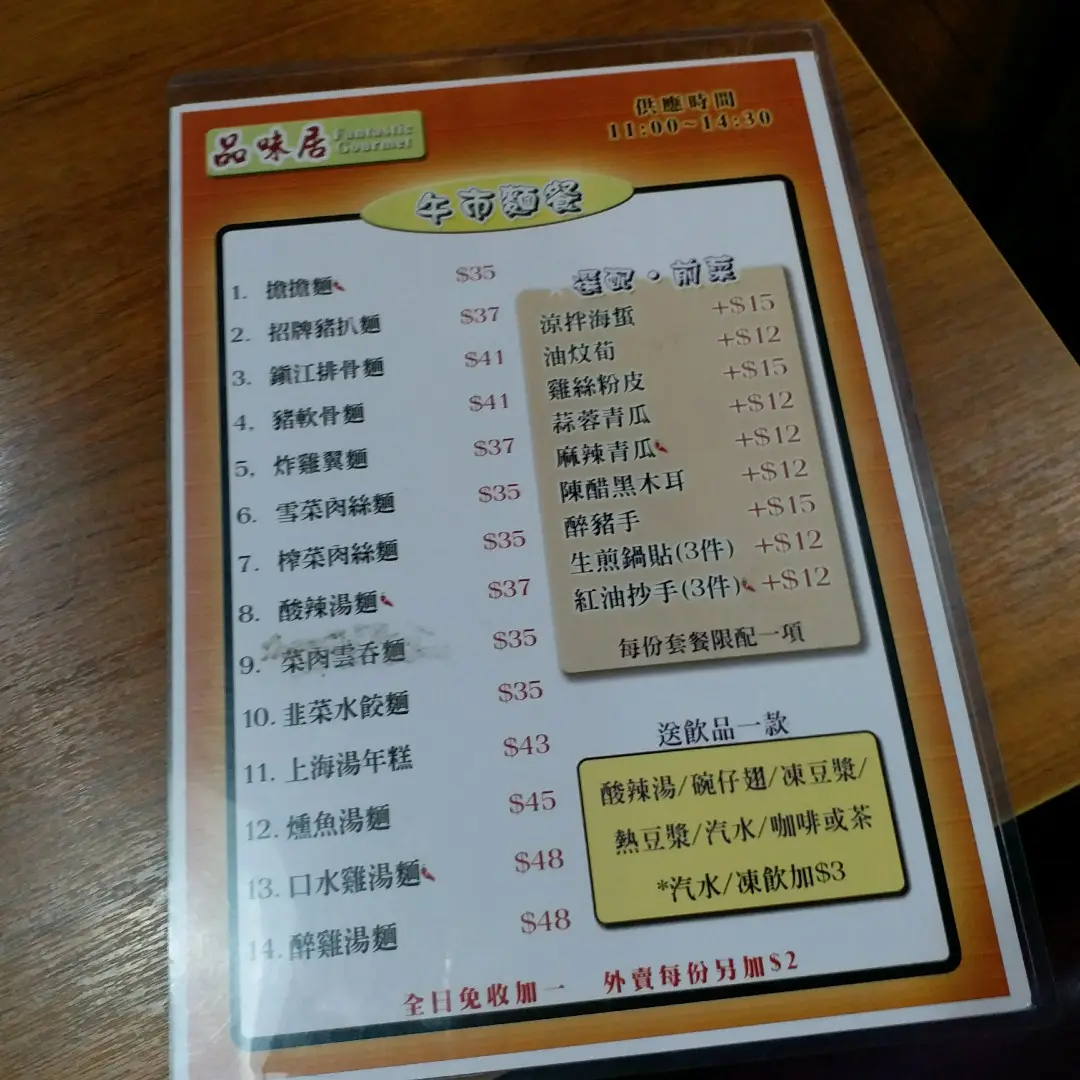 品味居 Fantastic Gourmet
供應時間
11:00~14:30
午市麵餐
1. 擔擔麵 $35
2. 招牌豬扒麵 $37
3. 鎮江排骨麵 $41
4. 豬軟骨麵 $41
5. 炸雞翼麵 $37
6. 雪菜肉絲麵 $35
7. 榨菜肉絲麵 $35
8. 酸辣湯麵 $37
9. 菜肉雲吞麵 $35
10. 韭菜水餃麵 $35
11. 上海湯年糕 $43
12. 燻魚湯麵 $45
13. 口水雞湯麵 $48
14. 醉雞湯麵 $48
選配·前菜
涼拌海蜇 +$15
油炆筍 +$12
雞絲粉皮 +$15
蒜蓉青瓜 +$12
麻辣青瓜 +$12
陳醋黑木耳 +$12
醉豬手 +$15
生煎鍋貼(3件) +$12
紅油抄手(3件) +$12
每份套餐限配一項
送飲品一款
酸辣湯/碗仔翅/凍豆漿/
熱豆漿/汽水/咖啡或茶
*汽水/凍飲加$3
全日免收加一 外賣每份另加$2